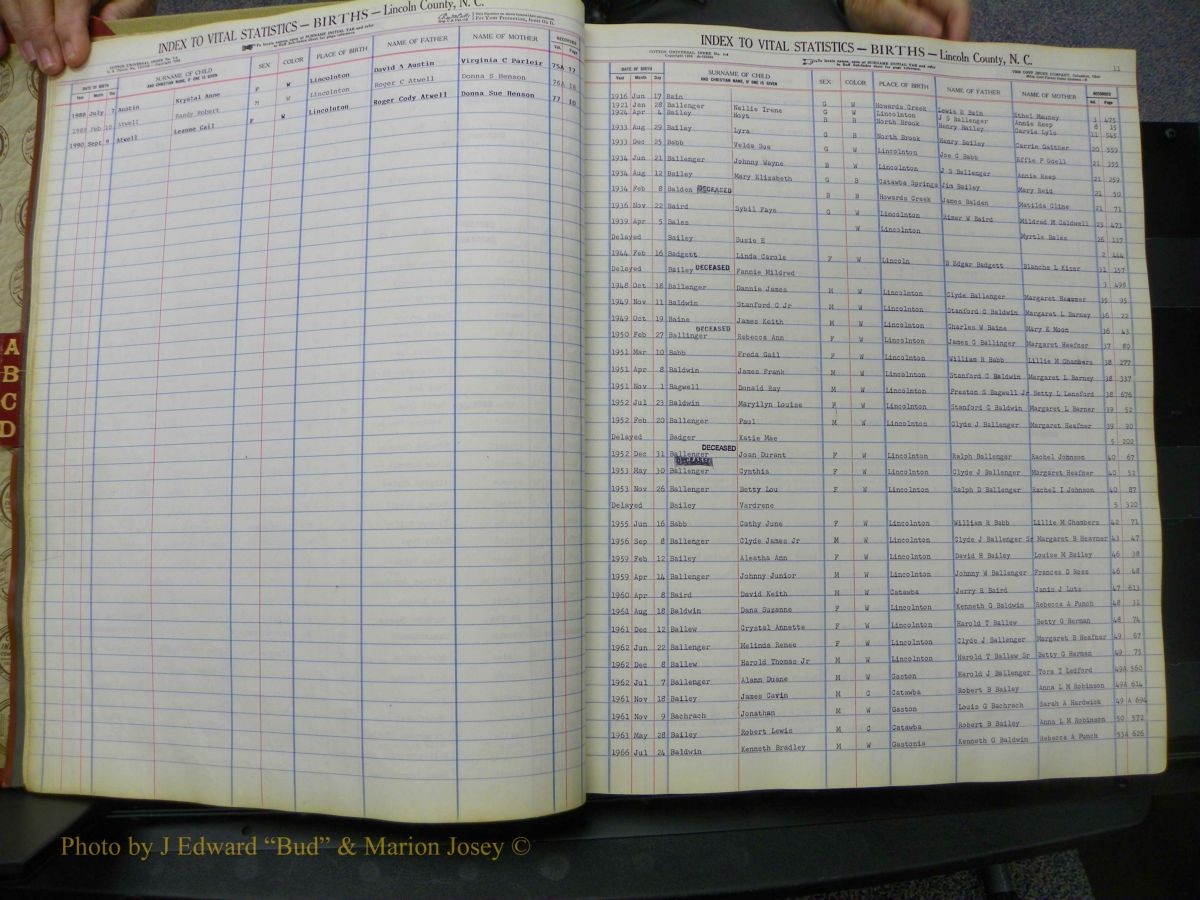 INDEX TO VITAL STATISTICS — BIRTHS — Lincoln County, N. C.
DATE OF BIRTH SURNAME OF CHILD AND CHRISTIAN NAME, IF ONE IS GIVEN SEX COLOR PLACE OF BIRTH NAME OF FATHER NAME OF MOTHER RECORDED
Year Month Day Vol. Page
1988 July 7 Austin Krystal Anne F W Lincolnton David A Austin Virginia C Parleir 75A 37
1989 Feb 10 Atwell Randy Robert M W Lincolnton Roger C Atwell Donna S Henson 76A 18
1990 Sept 9 Atwell Leanne Gail F W Lincolnton Roger Cody Atwell Donna Sue Henson 77 10
A
B
C
D
INDEX TO VITAL STATISTICS — BIRTHS — Lincoln County, N. C.
11
DATE OF BIRTH SURNAME OF CHILD AND CHRISTIAN NAME, IF ONE IS GIVEN SEX COLOR PLACE OF BIRTH NAME OF FATHER NAME OF MOTHER RECORDED
Year Month Day Vol. Page
1916 Jun 17 Bain G W Howards Creek Lewis R Bain Ethel Mauney 3 475
1921 Jan 28 Ballenger Nellie Irene G W Lincolnton J S Ballenger Annie Keep 8 15
1924 Apr 4 Bailey Hoys B B North Brook Henry Bailey Carvia Lyle 11 545
1933 Aug 29 Bailey Lyra G B North Brook Henry Bailey Carrie Gaither 20 559
1933 Dec 25 Babb Velda Sue G W Lincolnton Joe C Babb Effie P Odell 21 355
1934 Jun 21 Ballenger Johnny Wayne B W Lincolnton J S Ballenger Annie Keep 21 259
1934 Aug 12 Bailey Mary Elizabeth G B Catawba Springs Jim Bailey Mary Reid 21 50
1934 Feb 8 Balden DECEASED B B Howards Creek James Balden Matilda Cline 21 71
1936 Nov 22 Baird Sybil Faye G W Lincolnton Elmer W Baird Mildred M Caldwell 23 473
1939 Apr 5 Bales W Lincolnton Myrtle Bales 26 137
Delayed Bailey Susie E 2 444
1944 Feb 16 Badgett Linda Carole F W Lincoln B Edgar Badgett Blanche L Kiser 31 157
Delayed Bailey DECEASED Fannie Mildred 3 498
1948 Oct 18 Ballenger Dannie James M W Lincolnton Clyde Ballenger Margaret Heavner 35 95
1949 Nov 11 Baldwin Stanford G Jr M W Lincolnton Stanford G Baldwin Margaret L Barney 36 22
1949 Oct 19 Baine James Keith M W Lincolnton Charles W Baine Mary E Moon 36 43
1950 Feb 27 Ballinger DECEASED Rebecca Ann F W Lincolnton James G Ballinger Margaret Heafner 37 80
1951 Mar 10 Babb Freda Gail F W Lincolnton William R Babb Lillie M Chambers 38 277
1951 Apr 8 Baldwin James Frank M W Lincolnton Stanford G Baldwin Margaret L Barney 38 337
1951 Nov 1 Bagwell Donald Ray M W Lincolnton Preston S Bagwell Jr Betty L Lansford 38 676
1952 Jul 23 Baldwin Maryilyn Louise F W Lincolnton Stanford G Baldwin Margaret L Barner 39 52
1952 Feb 20 Ballenger Paul M W Lincolnton Clyde J Ballenger Margaret Heafner 39 90
Delayed Badger Katie Mae 5 202
1952 Dec 31 Ballenger DECEASED Joan Durant F W Lincolnton Ralph Ballenger Rachel Johnson 40 67
DECEASED
1953 May 30 Ballenger Cynthia F W Lincolnton Clyde J Ballenger Margaret Heafner 40 52
1953 Nov 26 Ballenger Betty Lou F W Lincolnton Ralph D Ballenger Rachel I Johnson 40 87
Delayed Bailey Vardrene 5 320
1955 Jun 16 Babb Cathy June F W Lincolnton William R Babb Lillie M Chambers 42 71
1956 Sep 8 Ballenger Clyde James Jr M W Lincolnton Clyde J Ballenger Sr Margaret B Heavner 43 47
1959 Feb 12 Bailey Aleatha Ann F W Lincolnton David H Bailey Louise M Bailey 46 38
1959 Apr 14 Ballenger Johnny Junior M W Lincolnton Johnny W Ballenger Frances D Ross 46 48
1960 Apr 8 Baird David Keith M W Catawba Jerry R Baird Janis J Lutz 47 613
1961 Aug 18 Baldwin Dana Suzanne F W Lincolnton Kenneth G Baldwin Rebecca A Punch 48 31
1961 Dec 12 Ballew Crystal Annette F W Lincolnton Harold T Ballew Betty G Herman 48 74
1962 Jun 22 Ballenger Melinda Renee F W Lincolnton Clyde J Ballenger Margaret B Heafner 49 67
1962 Dec 8 Ballew Harold Thomas Jr M W Lincolnton Harold T Ballew Sr Betty G Herman 49 75
1962 Jul 7 Ballenger Alann Duane M W Gaston Harold J Ballenger Tora I Ledford 49A 560
1961 Nov 18 Bailey James Cavin M C Catawba Robert B Bailey Anna L M Robinson 49A 614
1961 Nov 9 Bachrach Jonathan M W Gaston Louis G Bachrach Sarah A Hardwick 49 A 694
1963 May 28 Bailey Robert Lewis M C Catawba Robert B Bailey Anna L M Robinson 50 572
1966 Jul 24 Baldwin Kenneth Bradley M W Gastonia Kenneth G Baldwin Rebecca A Punch 53A 626
Photo by J Edward “Bud” & Marion Josey ©